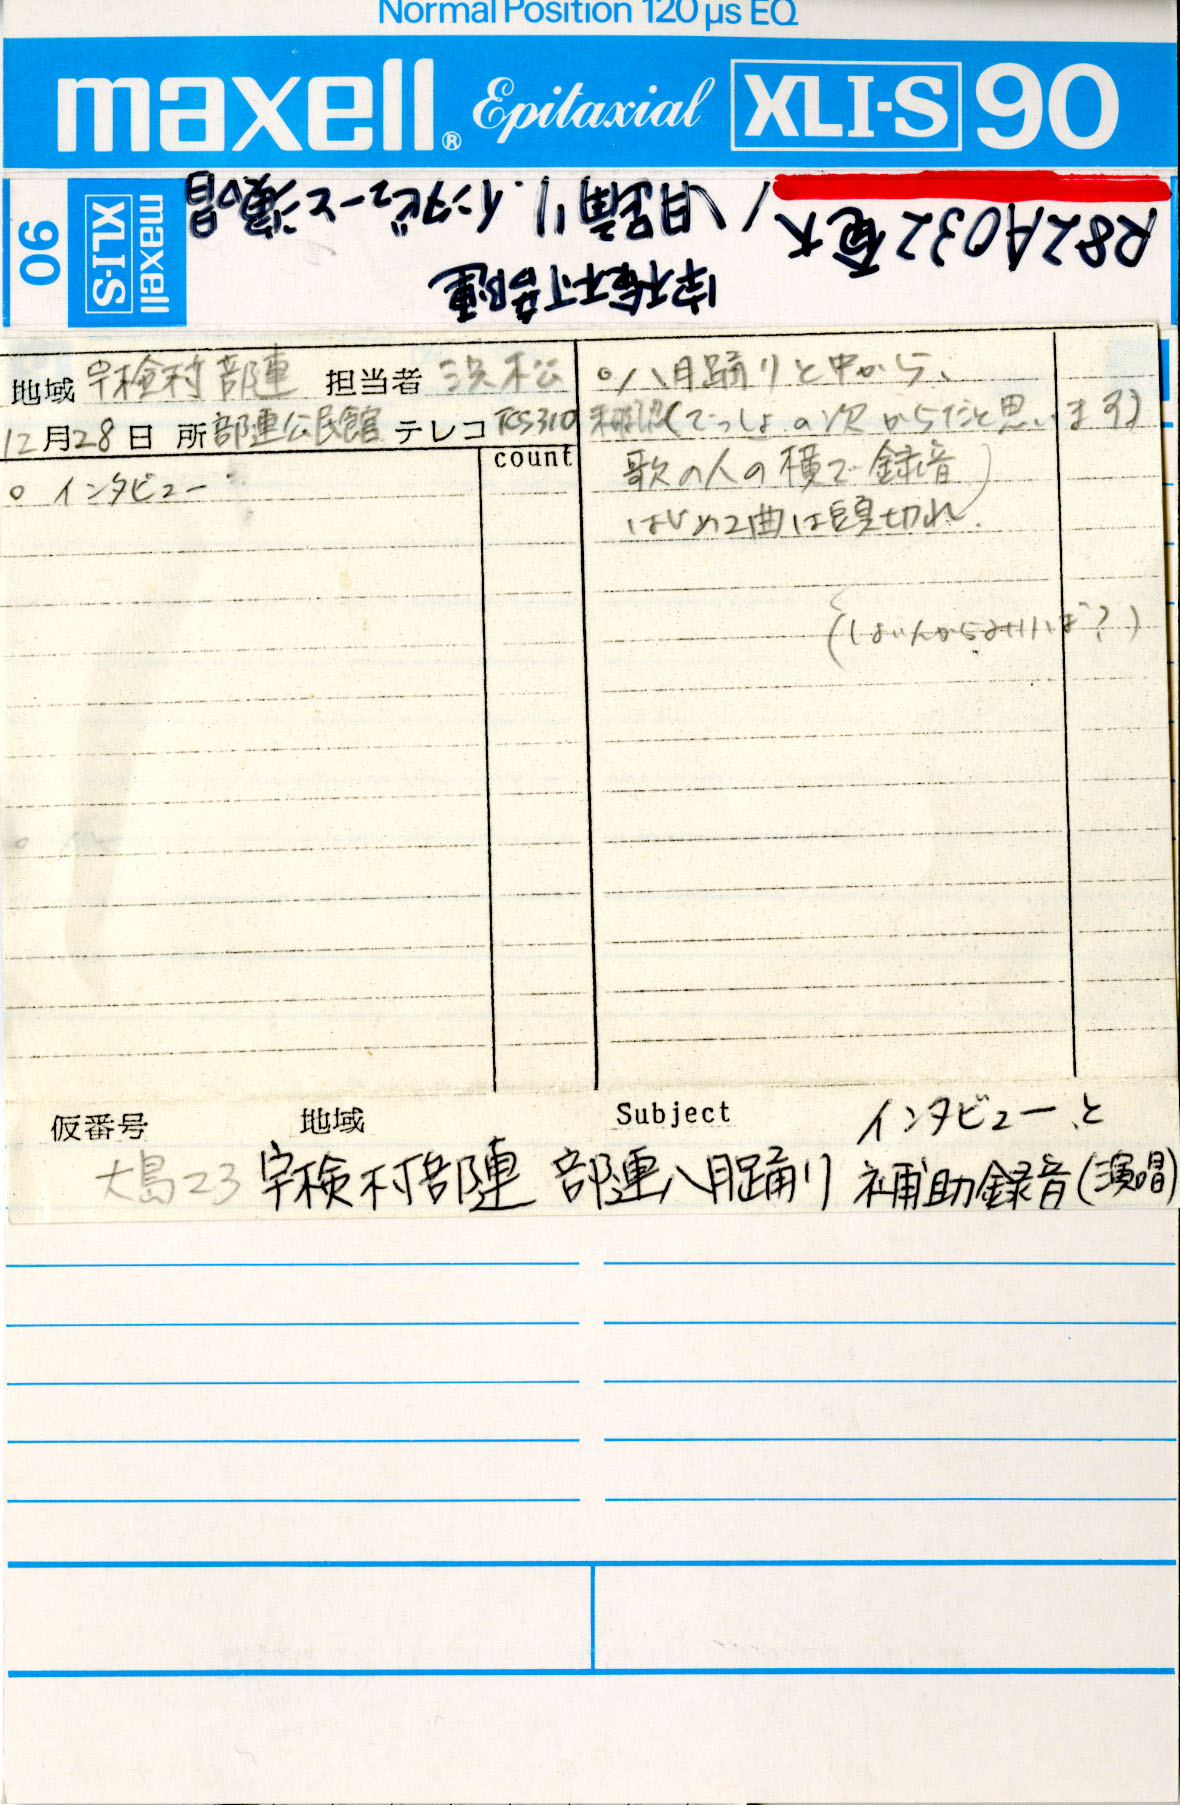 Normal Position 120 μs EQ
maxell® Epitaxial XLI-S 90
90 XLI-S maxell
R82A032 奄大 八月踊り.インタビューと演唱
宇検村部連
地域 宇検村部連 担当者 浜松
12月28日 所 部連公民館 テレコ TCS310
count
○ インタビュー
○八月踊りと中から、
(でっしょの次からだと思います)
歌の人の横で録音
はじめ2曲は頭切れ.
仮番号 地域 Subject インタビューと
大島23 宇検村部連 部連八月踊り 補助録音(演唱)